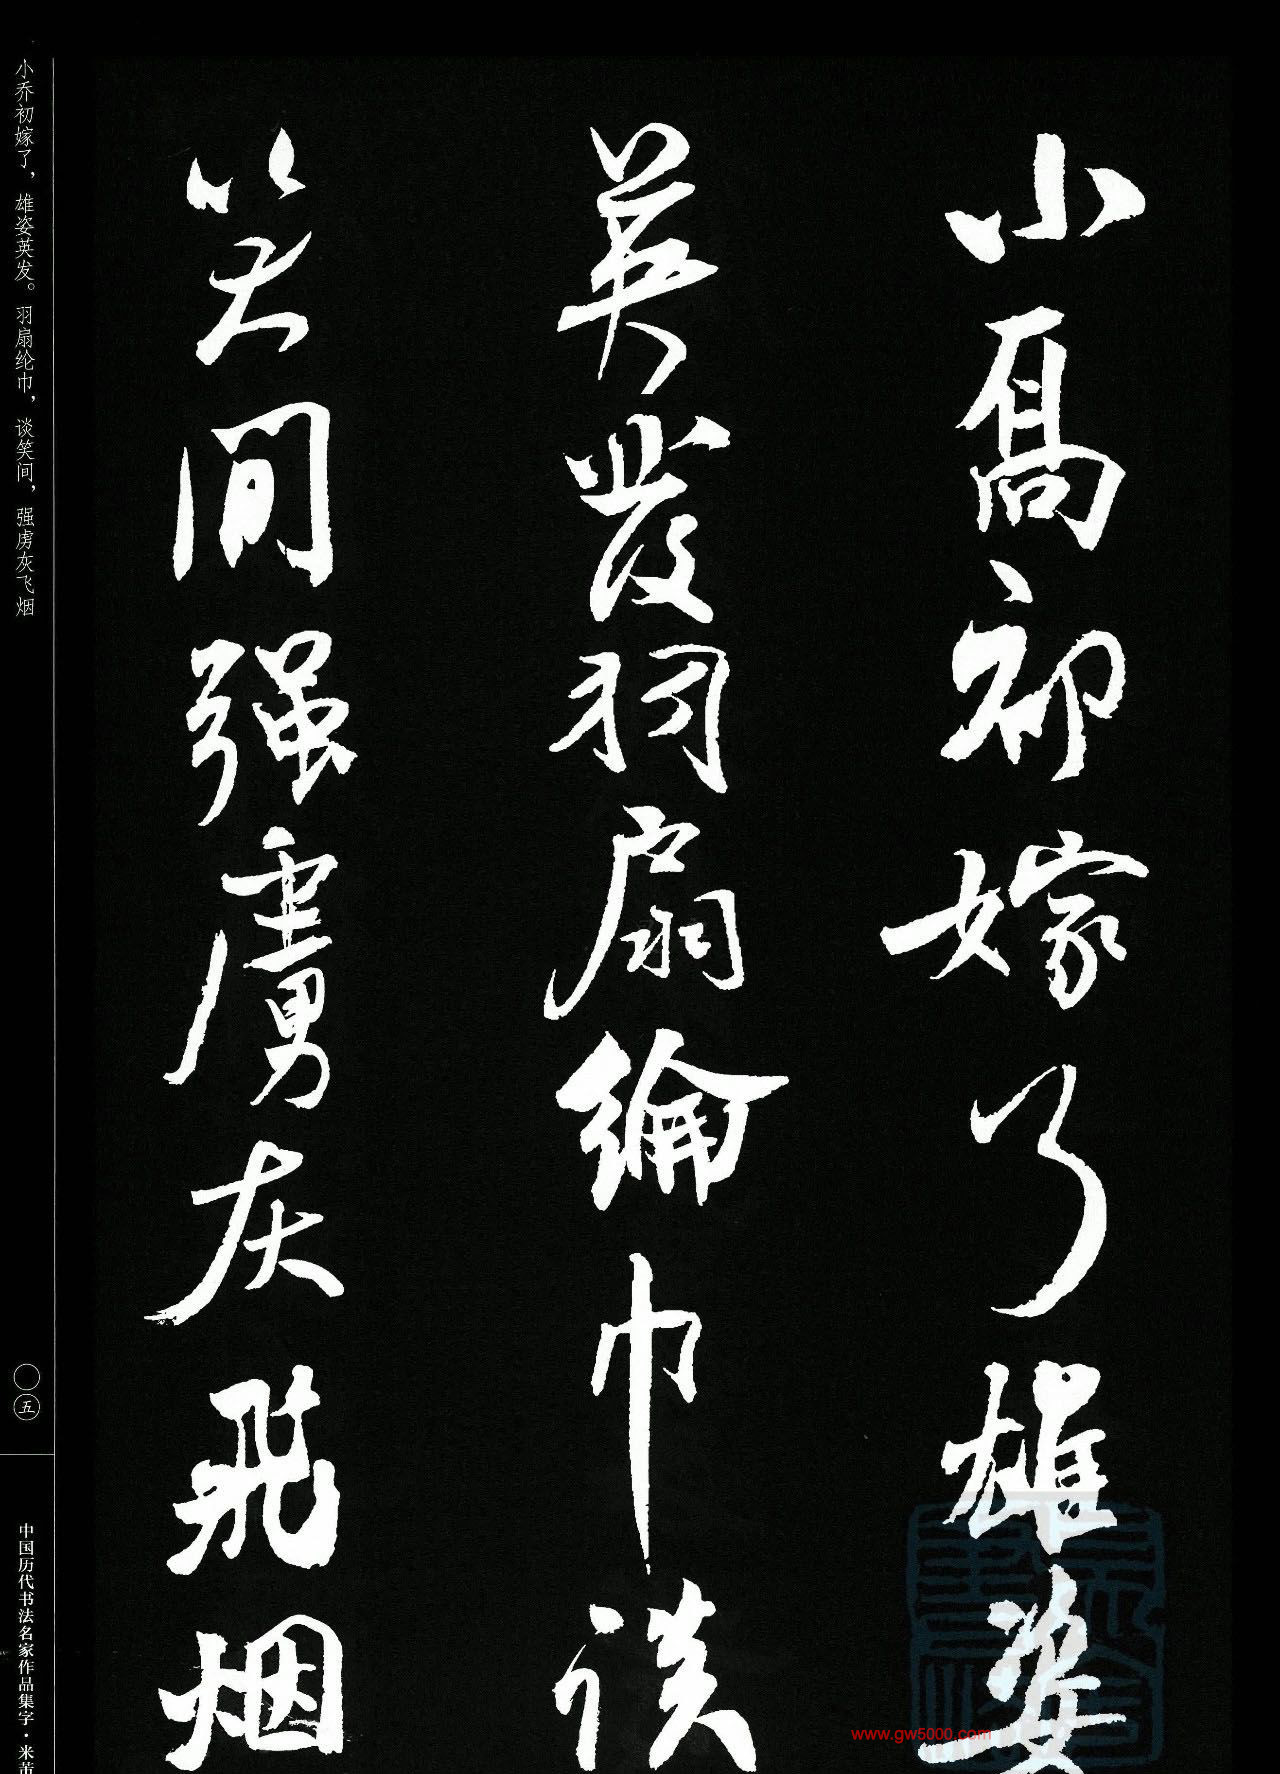 小喬初嫁了雄姿
英發羽扇綸巾談
笑間强虜灰飛烟
小乔初嫁了，雄姿英发。羽扇纶巾，谈笑间，强虏灰飞烟
〇五
中国历代书法名家作品集字·米芾
www.gw5000.com